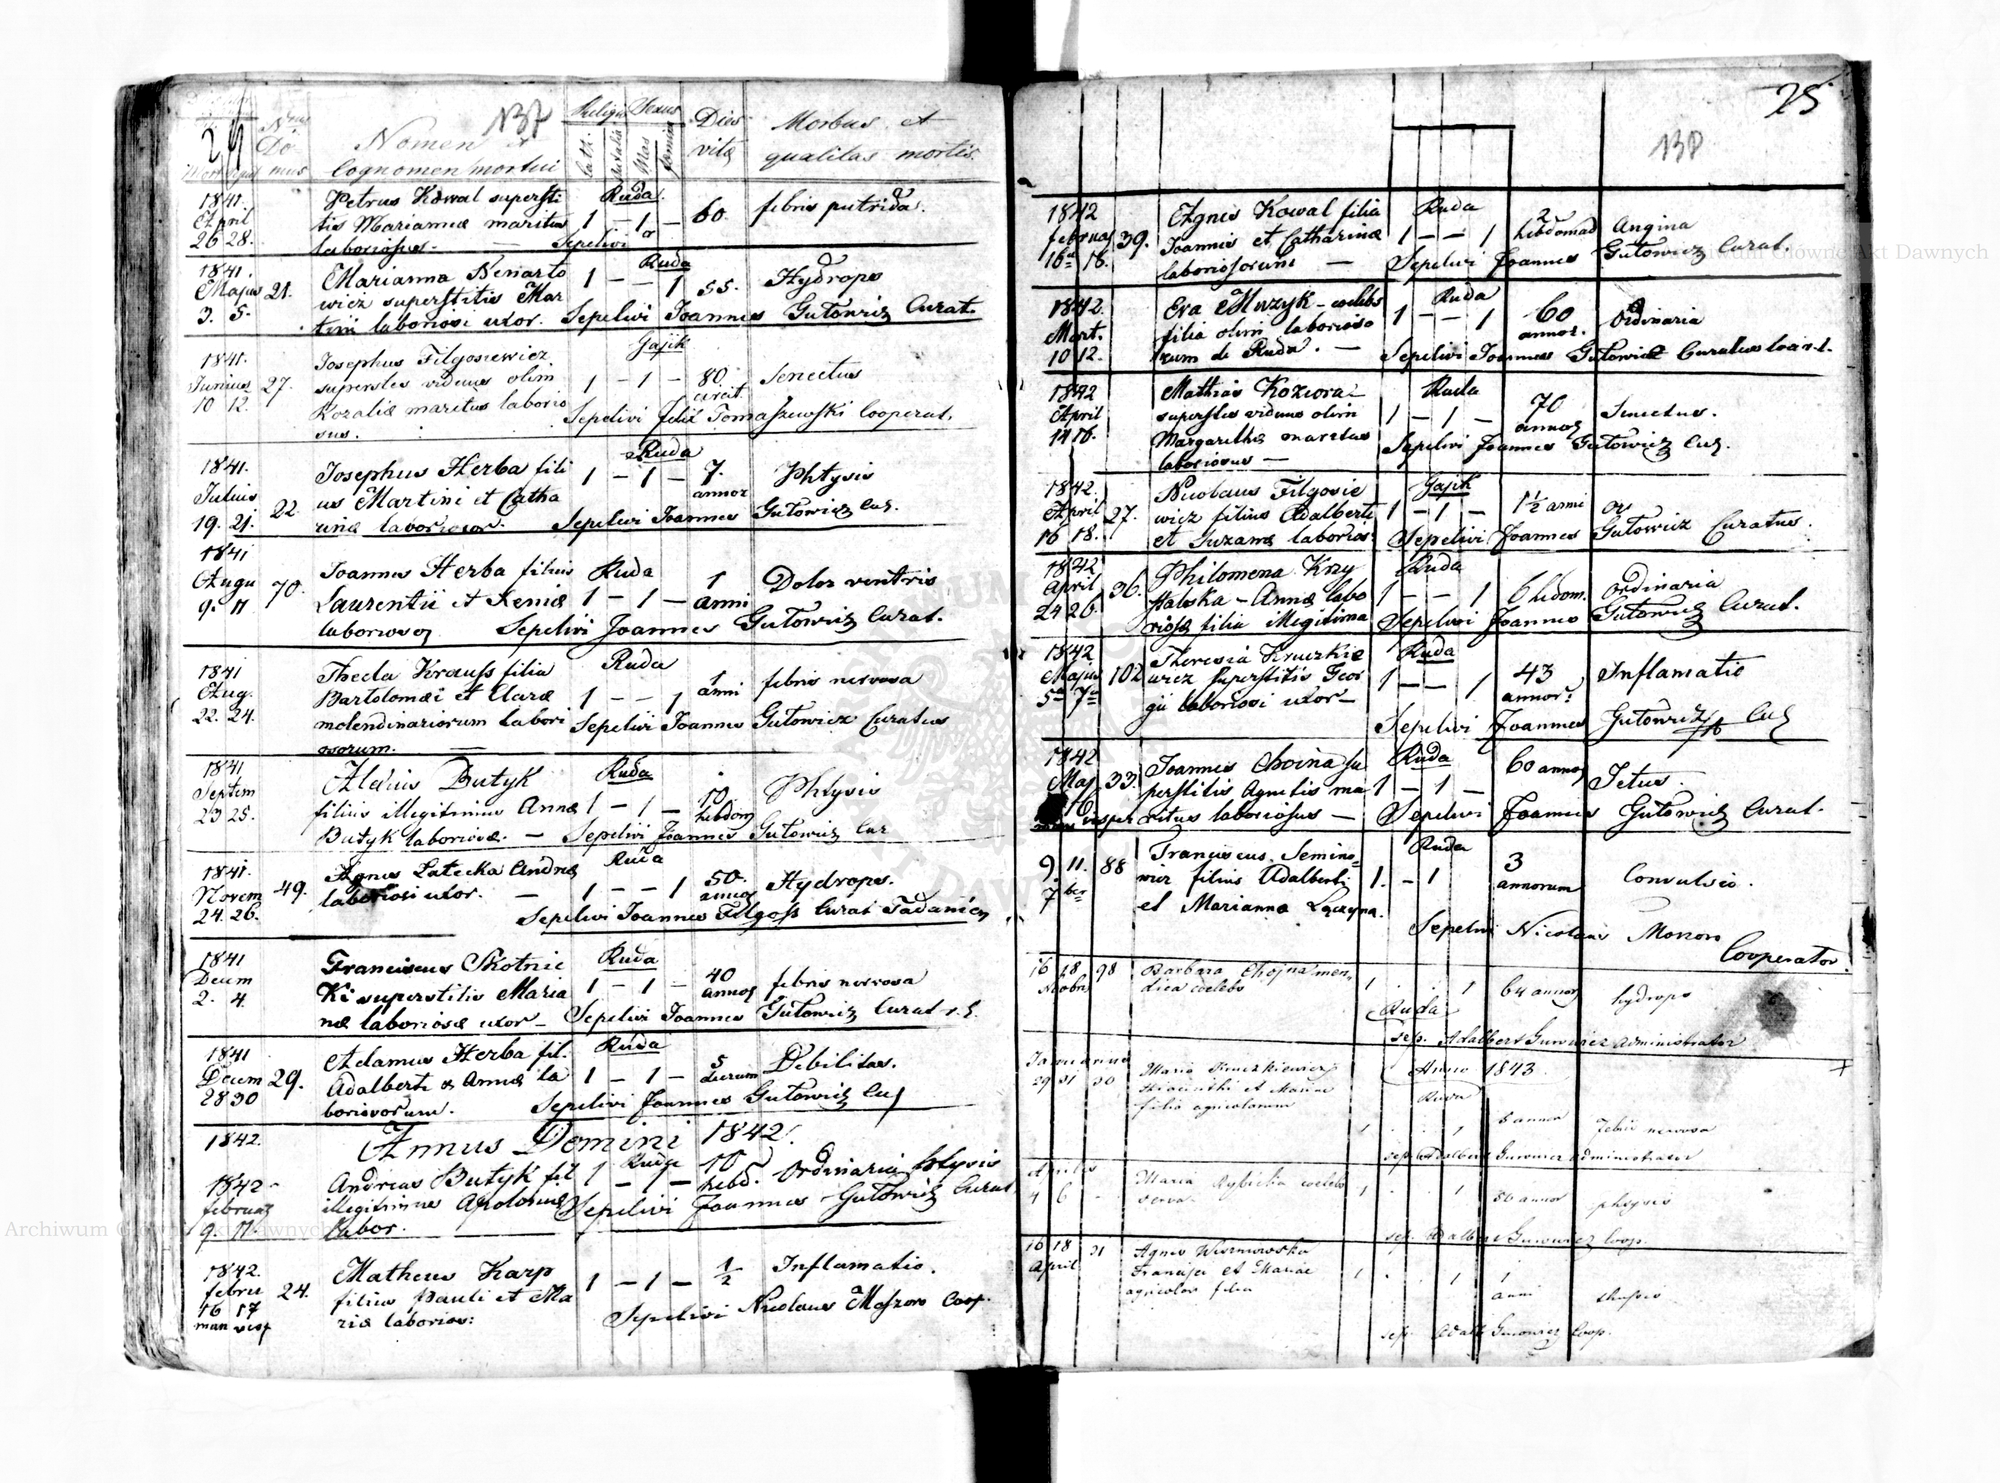 137
Nomen et
Cognomen mortui
Religio Sexus
Cath.
Dies
vitæ
Morbus et
qualitas mortis.
1841. Petrus Kowal supersti Ruda.
April tis Mariannæ maritus 1 – 1 – 60. febris putrida.
26 28. laboriosus. Sepelivi
1841. Marianna Ruda
Majus 21. wicz superstitis Mar 1 – – 1 55. Hydrops
3. 5. tini laboriosi uxor. Sepelivi Joannes Gutowicz Curat.
1841. Josephus Filgosiewicz Gajik
Junius 27. superstes viduus olim 1 – 1 – 80 Senectus
10 12. Rozaliæ maritus laborio circit.
sus. Sepelivi felix Tomaszewski Cooperat.
1841. Josephus Herba fili Ruda
Julius us Martini et Catha 1 – 1 – 7. Phtysis
19. 21. 22. rinæ laborior. annor
Sepelivi Joannes Gutowicz Cur.
1841 Joannes Herba filius Ruda 1 Dolor ventris
Augu 70. Laurentii et Xeniæ 1 – 1 – anni
9. 11 laborioso Sepelivi Joannes Gutowicz Curat.
1841 Thecla Krauss filia Ruda
Aug. Bartolomæi et Claræ 1 – – 1 1 anni febris nervosa
22. 24. molendinariorum labori Sepelivi Joannes Gutowicz Curatus
osorum.
1841 Butyk Ruda
Septem filius illegitimus Annæ 1 – 1 – 10. Phtysis
23 25. Butyk laboriosæ. – hebdom
Sepelivi Joannes Gutowicz Cur
1841. Agnes Latecka Andreæ Ruda
Novem 49. laboriosi uxor. – 1 – – 1 50. Hydrops.
24. 26. Sepelivi Joannes Filgoss Curat
1841 Franciscus Skotnic Ruda
Decem ki superstitis Maria 1 – 1 – 40 febris nervosa
2. 4. næ laboriosæ uxor – Sepelivi Joannes Gutowicz Curat
1841 Adamus Herba fil. Ruda
Decem 29. Adalberti & Annæ la 1 – 1 – 5 dierum Debilitas.
28 30 boriosorum. Sepelivi Joannes Gutowicz
1842. Annus Domini 1842.
1842 Andreas Butyk fil Ruda 10 Ordinaria phtysis
februar illegitimus Apoloniæ 1 – 1 – hebd.
9. 11. labor. Sepelivi Joannes Gutowicz Curat
1842. Matheus Karp
febru 24. filius Pauli et Ma 1 – 1 – 1/2 Inflamatio.
16 17 riæ laborios: Sepelivi Nicolaus Mozoro Coop.
man vesp
25
138
1842 Agnes Kowal filia Ruda 2
februa 39. Joannis et Catharinæ 1 – – 1 hebdomad Angina
16 18. laboriosorum – Sepelivi Joannes Gutowicz Curat.
1842. Eva Muzyk – coelebs Ruda
Mart. filia olim laborioso 1 – – 1 60 Ordinaria
10 12. rum de Ruda. – annor.
Sepelivi Joannes Gutowicz Curatus
1842 Mathias Koziora Ruda
April superstes viduus olim 1 – 1 – 70 Senectus.
14 16. Margarithæ maritus
laboriosus – Sepelivi Joannes Gutowicz Cur.
1842. Nicolaus Filgosie Gajik
April 27. wicz filius Adalberti 1 – 1 – 1½ anni
16 18. et Suzanæ laborios: Sepelivi Joannes Gutowicz Curatus.
1842 Philomena Krzy Ruda
April 36. Annæ labo 1 – – 1 6 hebdom. Ordinaria
24 26. riosæ filia illegitima Sepelivi Joannes Gutowicz Curat.
1842 Theresia Kruczkie Ruda
Majus 102 wicz superstitis Geor 1 – – 1 43 Inflamatio
5 7 gii laboriosi uxor – annor:
Sepelivi Joannes Gutowicz Cur
1842 Joannes Choina su Ruda 60 annor
Maj. 33. perstitis Agnetis ma 1 – 1 – Ictus.
16 ritus laboriosus – Sepelivi Joannes Gutowicz Curat.
Franciscus Semino= Ruda 3
9 11. 88 wicz filius Adalberti 1. – 1 annorum Convulsio.
7ber et Marianna
Sepelivi Nicolaus
Cooperator
16 18 98 Barbara Chojna men
dica coelebs 1 . . 1 64 annor hydrops
Ruda
sep. Adalbert Gurowicz administrator
Januarius Anno 1843.
29 31 30 Maria
Hiacinthi et Mariae Ruda
filia agricolarum
1 . . 1 8 annor febris nervosa
sep. Adalbert Gurowicz administrator
Aprilis Maria Rybicka coelebs
4 6 – 1 . . 1 30 annor phtysis
sep. Adalbert Gurowicz Coop.
16 18 21 Agnes Wiszniowska
April Francisci et Mariae 1 . . 1 1
agricolar filia anni
sep. Adalb Gurowicz Coop.
Archiwum Główne Akt Dawnych
Archiwum Główne Akt Dawnych